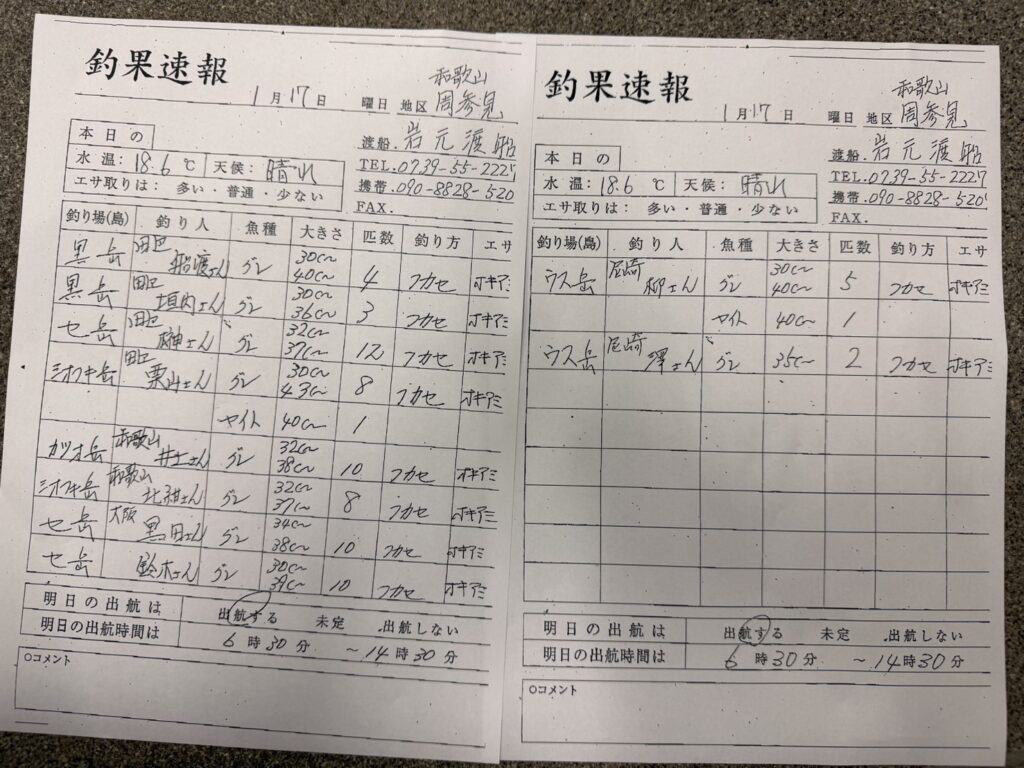 釣果速報
和歌山
1月17日 曜日 地区 周参見
本日の
渡船. 岩元渡船
水温: 18.6 ℃ 天候: 晴れ
TEL. 0739-55-222
エサ取りは: 多い・普通・少ない
携帯. 090-8828-520
FAX.
釣り場(島) 釣り人 魚種 大きさ 匹数 釣り方 エサ
黒岳 田辺 船渡さん グレ 30㎝~40㎝ 4 フカセ オキアミ
黒岳 田辺 垣内さん グレ 30㎝~36㎝ 3 フカセ オキアミ
セ岳 田辺 さん グレ 32㎝~37㎝ 12 フカセ オキアミ
シオフキ岳 田辺 栗山さん グレ 30㎝~43㎝ 8 フカセ オキアミ
ヤイト 40㎝ 1
カツオ岳 和歌山 井土さん グレ 32㎝~38㎝ 10 フカセ オキアミ
シオフキ岳 和歌山 さん グレ 32㎝~37㎝ 8 フカセ オキアミ
セ岳 大阪 黒田さん グレ 34㎝~38㎝ 10 フカセ オキアミ
セ岳 鈴木さん グレ 30㎝~39㎝ 10 フカセ オキアミ
明日の出航は 出航する 未定 出航しない
明日の出航時間は 6時30分 ~14時30分
○コメント
釣果速報
和歌山
1月17日 曜日 地区 周参見
本日の
渡船. 岩元渡船
水温: 18.6 ℃ 天候: 晴れ
TEL. 0739-55-2227
エサ取りは: 多い・普通・少ない
携帯. 090-8828-520
FAX.
釣り場(島) 釣り人 魚種 大きさ 匹数 釣り方 エサ
ウス岳 尼崎 柳さん グレ 30㎝~40㎝ 5 フカセ オキアミ
ヤイト 40㎝ 1
ウス岳 尼崎 澤さん グレ 35㎝ 2 フカセ オキアミ
明日の出航は 出航する 未定 出航しない
明日の出航時間は 6時30分 ~14時30分
○コメント